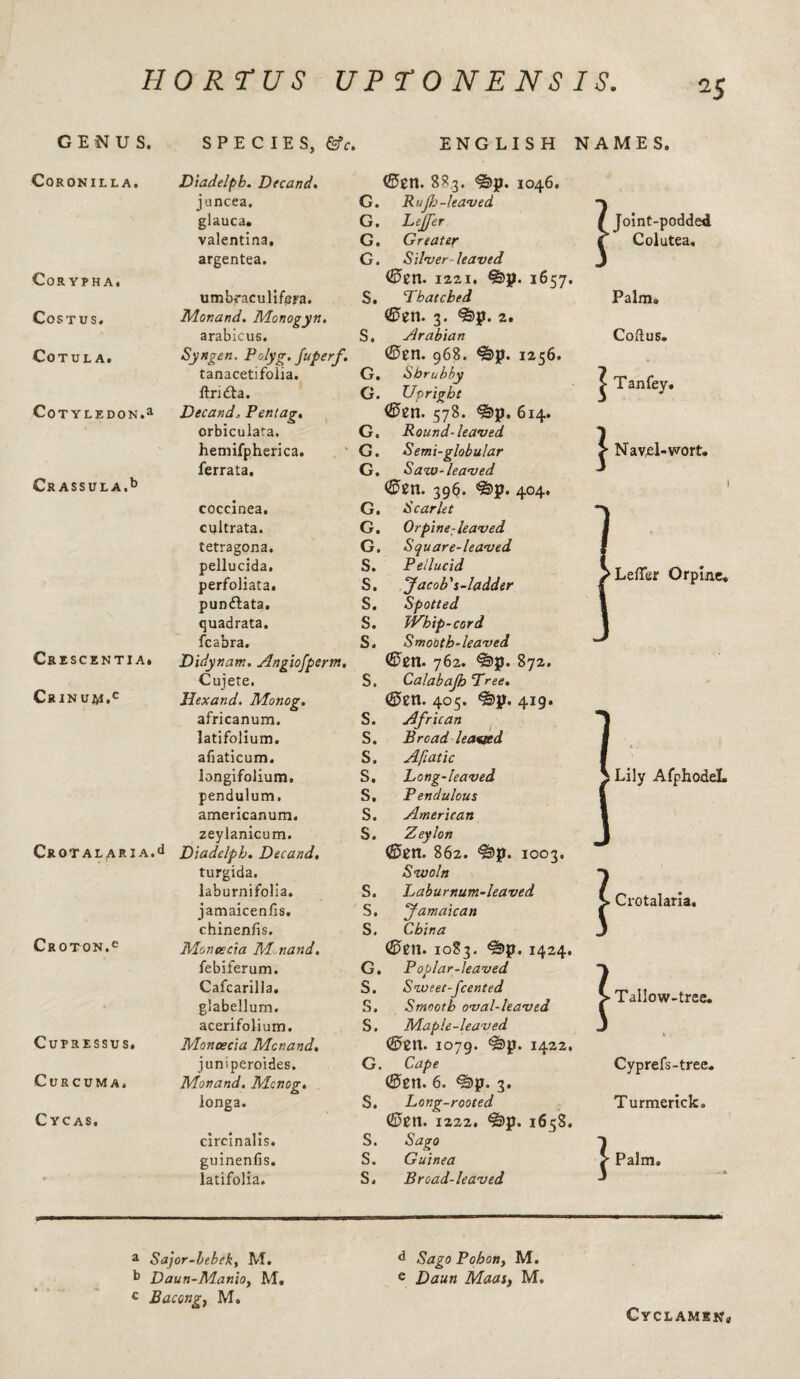 HORTUS UPTONENSIS. 25
GENUS. SPECIES, &c. ENGLISH NAMES.
CORONILLA. Diadelph. Decand. Gen. 883. Sp. 1046.
juncea. G. Ruſh-leaved
glauca. G. Leſſer } Joint-podded
valentina. G. Greater Colutea.
argentea. G. Silver-leaved
CORYPHA. Gen. 1221. Sp. 1657.
umbraculifera. S. Thatched Palm.
COSTUS. Monand. Monogyn. Gen. 3. Sp. 2.
arabicus. S. Arabian Coſtus.
COTULA. Syngen. Polyg. ſuperf. Gen. 968. Sp. 1256.
tanacetifolia. G. Shrubby } Tanſey.
ſtricta. G. Upright
COTYLEDON.a Decand. Pentag. Gen. 578. Sp. 614.
orbiculata. G. Round-leaved
hemiſpherica. G. Semi-globular } Navel-wort.
ſerrata. G. Saw-leaved
CRASSULA.b Gen. 396. Sp. 404.
coccinea. G. Scarlet
cultrata. G. Orpine-leaved
tetragona. G. Square-leaved
pellucida. S. Pellucid } Leſſer Orpine.
perfoliata. S. Jacob's-ladder
punctata. S. Spotted
quadrata. S. Whip-cord
ſcabra. S. Smooth-leaved
CRESCENTIA. Didynam. Angioſperm. Gen. 762. Sp. 872.
Cujete. S. Calabaſh Tree.
CRINUM.c Hexand. Monog. Gen. 405. Sp. 419.
africanum. S. African
latifolium. S. Broad leaved
aſiaticum. S. Aſiatic
longifolium. S. Long-leaved } Lily Aſphodel.
pendulum. S. Pendulous
americanum. S. American
zeylanicum. S. Zeylon
CROTALARIA.d Diadelph. Decand. Gen. 862. Sp. 1003.
turgida. Swoln
laburnifolia. S. Laburnum-leaved } Crotalaria.
jamaicenſis. S. Jamaican
chinenſis. S. China
CROTON.e Monœcia M nand. Gen. 1083. Sp. 1424.
ſebiferum. G. Poplar-leaved
Caſcarilla. S. Sweet-ſcented } Tallow-tree.
glabellum. S. Smooth oval-leaved
acerifolium. S. Maple-leaved
CUPRESSUS. Monœcia Monand. Gen. 1079. Sp. 1422.
juniperoides. G. Cape Cypreſs-tree.
CURCUMA. Monand. Monog. Gen. 6. Sp. 3.
longa. S. Long-rooted Turmerick.
CYCAS. Gen. 1222. Sp. 1658.
circinalis. S. Sago
guinenſis. S. Guinea } Palm.
latifolia. S. Broad-leaved
a Sajor-bebek, M.
b Daun-Manio, M.
c Bacong, M.
d Sago Pohon, M.
e Daun Maas, M.
CYCLAMEN,